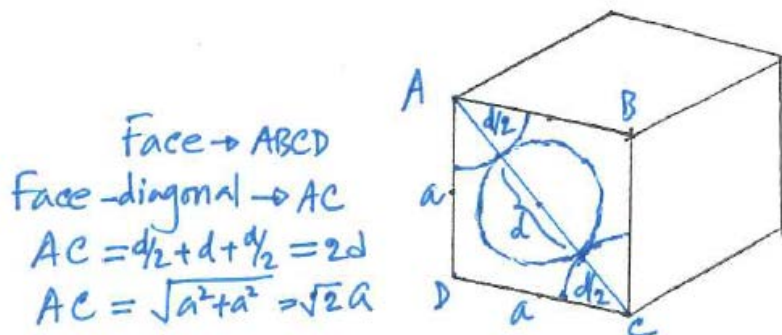 Face → ABCD
Face-diagonal → AC
AC = d/2 + d + d/2 = 2d
AC = √a²+a² = √2 a
A
B
d/2
a
d
d/2
D
a
C